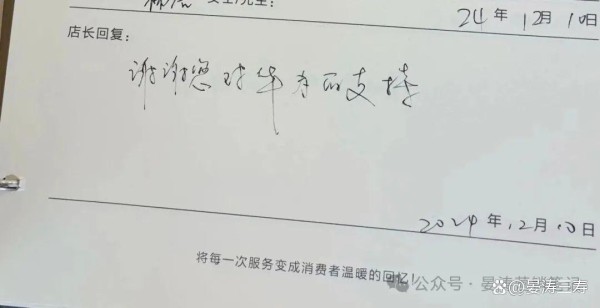 女士/先生： 24年12月10日
店长回复：
谢谢您对华为的支持
2024年12月10日
将每一次服务变成消费者温暖的回忆！
公众号·晏涛营销笔记
@晏涛三寿